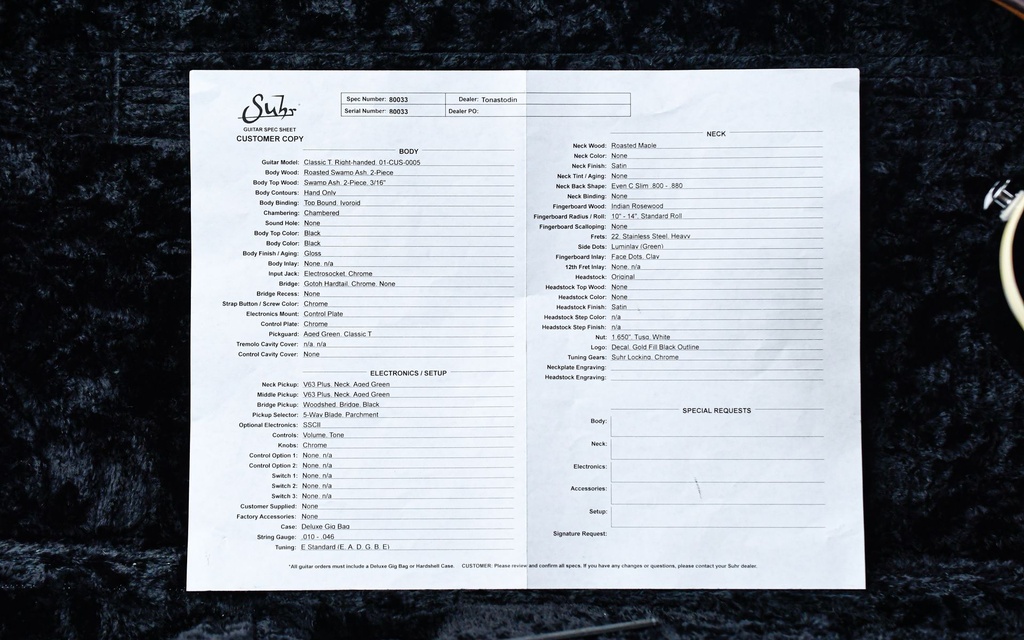 Suhr
GUITAR SPEC SHEET
CUSTOMER COPY
Spec Number: 80033 Dealer: Tonastodin
Serial Number: 80033 Dealer PO:
BODY
Guitar Model: Classic T, Right-handed, 01-CUS-0005
Body Wood: Roasted Swamp Ash, 2-Piece
Body Top Wood: Swamp Ash, 2-Piece, 3/16"
Body Contours: Hand Only
Body Binding: Top Bound, Ivoroid
Chambering: Chambered
Sound Hole: None
Body Top Color: Black
Body Color: Black
Body Finish / Aging: Gloss
Body Inlay: None, n/a
Input Jack: Electrosocket, Chrome
Bridge: Gotoh Hardtail, Chrome, None
Bridge Recess: None
Strap Button / Screw Color: Chrome
Electronics Mount: Control Plate
Control Plate: Chrome
Pickguard: Aged Green, Classic T
Tremolo Cavity Cover: n/a, n/a
Control Cavity Cover: None
ELECTRONICS / SETUP
Neck Pickup: V63 Plus, Neck, Aged Green
Middle Pickup: V63 Plus, Neck, Aged Green
Bridge Pickup: Woodshed, Bridge, Black
Pickup Selector: 5-Way Blade, Parchment
Optional Electronics: SSCII
Controls: Volume, Tone
Knobs: Chrome
Control Option 1: None, n/a
Control Option 2: None, n/a
Switch 1: None, n/a
Switch 2: None, n/a
Switch 3: None, n/a
Customer Supplied: None
Factory Accessories: None
Case: Deluxe Gig Bag
String Gauge: .010 - .046
Tuning: E Standard (E, A, D, G, B, E)
NECK
Neck Wood: Roasted Maple
Neck Color: None
Neck Finish: Satin
Neck Tint / Aging: None
Neck Back Shape: Even C Slim .800 - .880
Neck Binding: None
Fingerboard Wood: Indian Rosewood
Fingerboard Radius / Roll: 10" - 14", Standard Roll
Fingerboard Scalloping: None
Frets: 22, Stainless Steel, Heavy
Side Dots: Luminlay (Green)
Fingerboard Inlay: Face Dots, Clay
12th Fret Inlay: None, n/a
Headstock: Original
Headstock Top Wood: None
Headstock Color: None
Headstock Finish: Satin
Headstock Step Color: n/a
Headstock Step Finish: n/a
Nut: 1.650", Tusq, White
Logo: Decal, Gold Fill Black Outline
Tuning Gears: Suhr Locking, Chrome
Neckplate Engraving:
Headstock Engraving:
SPECIAL REQUESTS
Body:
Neck:
Electronics:
Accessories:
Setup:
Signature Request:
*All guitar orders must include a Deluxe Gig Bag or Hardshell Case. CUSTOMER: Please review and confirm all specs. If you have any changes or questions, please contact your Suhr dealer.